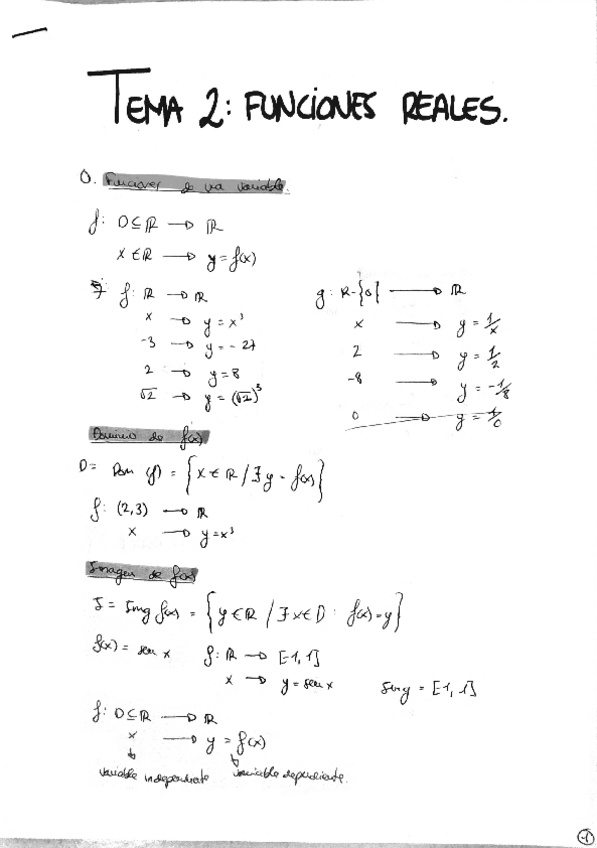 TEMA 2: FUNCIONES REALES.
0. Funciones de una variable.
f: D ⊆ ℝ → ℝ
x ∈ ℝ → y = f(x)
f: ℝ → ℝ
x → y = x³
-3 → y = -27
2 → y = 8
√2 → y = (√2)³
g: ℝ-{0} → ℝ
x → y = 1/x
2 → y = 1/2
-8 → y = -1/8
0 → y = 1/0
Dominio de f(x)
D = Dom (f) = {x ∈ ℝ / ∃ y = f(x)}
f: (2,3) → ℝ
x → y = x³
Imagen de f(x)
J = Img f(x) = {y ∈ ℝ / ∃ x ∈ D : f(x) = y}
f(x) = sen x f: ℝ → [-1, 1]
x → y = sen x Img = [-1, 1]
f: D ⊆ ℝ → ℝ
x → y = f(x)
variable independiente variable dependiente.
1